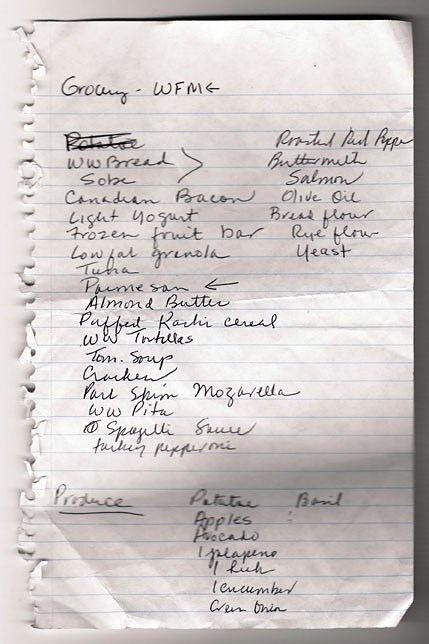 Grocery - WFM ←
Potatoe
WW Bread
Sobe
Canadian Bacon
Light Yogurt
Frozen fruit bar
Low fat granola
Tuna
Parmesan ←
Almond Butter
Puffed Kashi cereal
WW Tortillas
Tom. Soup
Crackers
Part Skim Mozarella
WW Pita
Spagetti Sauce
turkey pepperoni
Roasted Red Peppe
Buttermilk
Salmon
Olive Oil
Bread flour
Rye flour
Yeast
Produce
Potatoe
Apples
Avocado
1 jalapeno
1 leek
1 cucumber
Green Onion
Basil